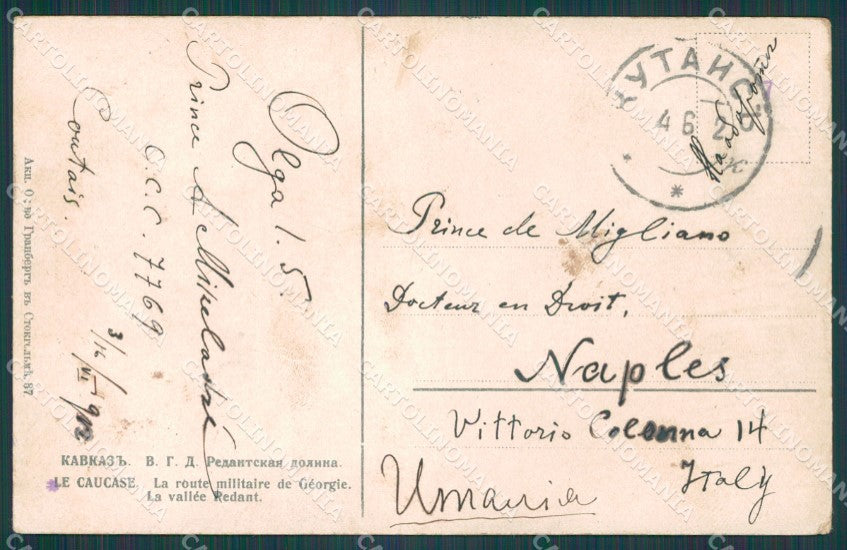 Olga 1. 5.
Prince A Mikeladzé
C.C.C. 7769
Coutaïs. 3/16/VI 1912
Акц. О-во Гранбергъ въ Стокгольмѣ, 87
КАВКАЗЪ. В. Г. Д. Редантская долина.
LE CAUCASE. La route militaire de Géorgie.
La vallée Redant.
КУТАИС
4 6 12
Prince de Migliano
Docteur en Droit,
Naples
Vittorio Colonna 14
Italy
CARTOLINOMANIA